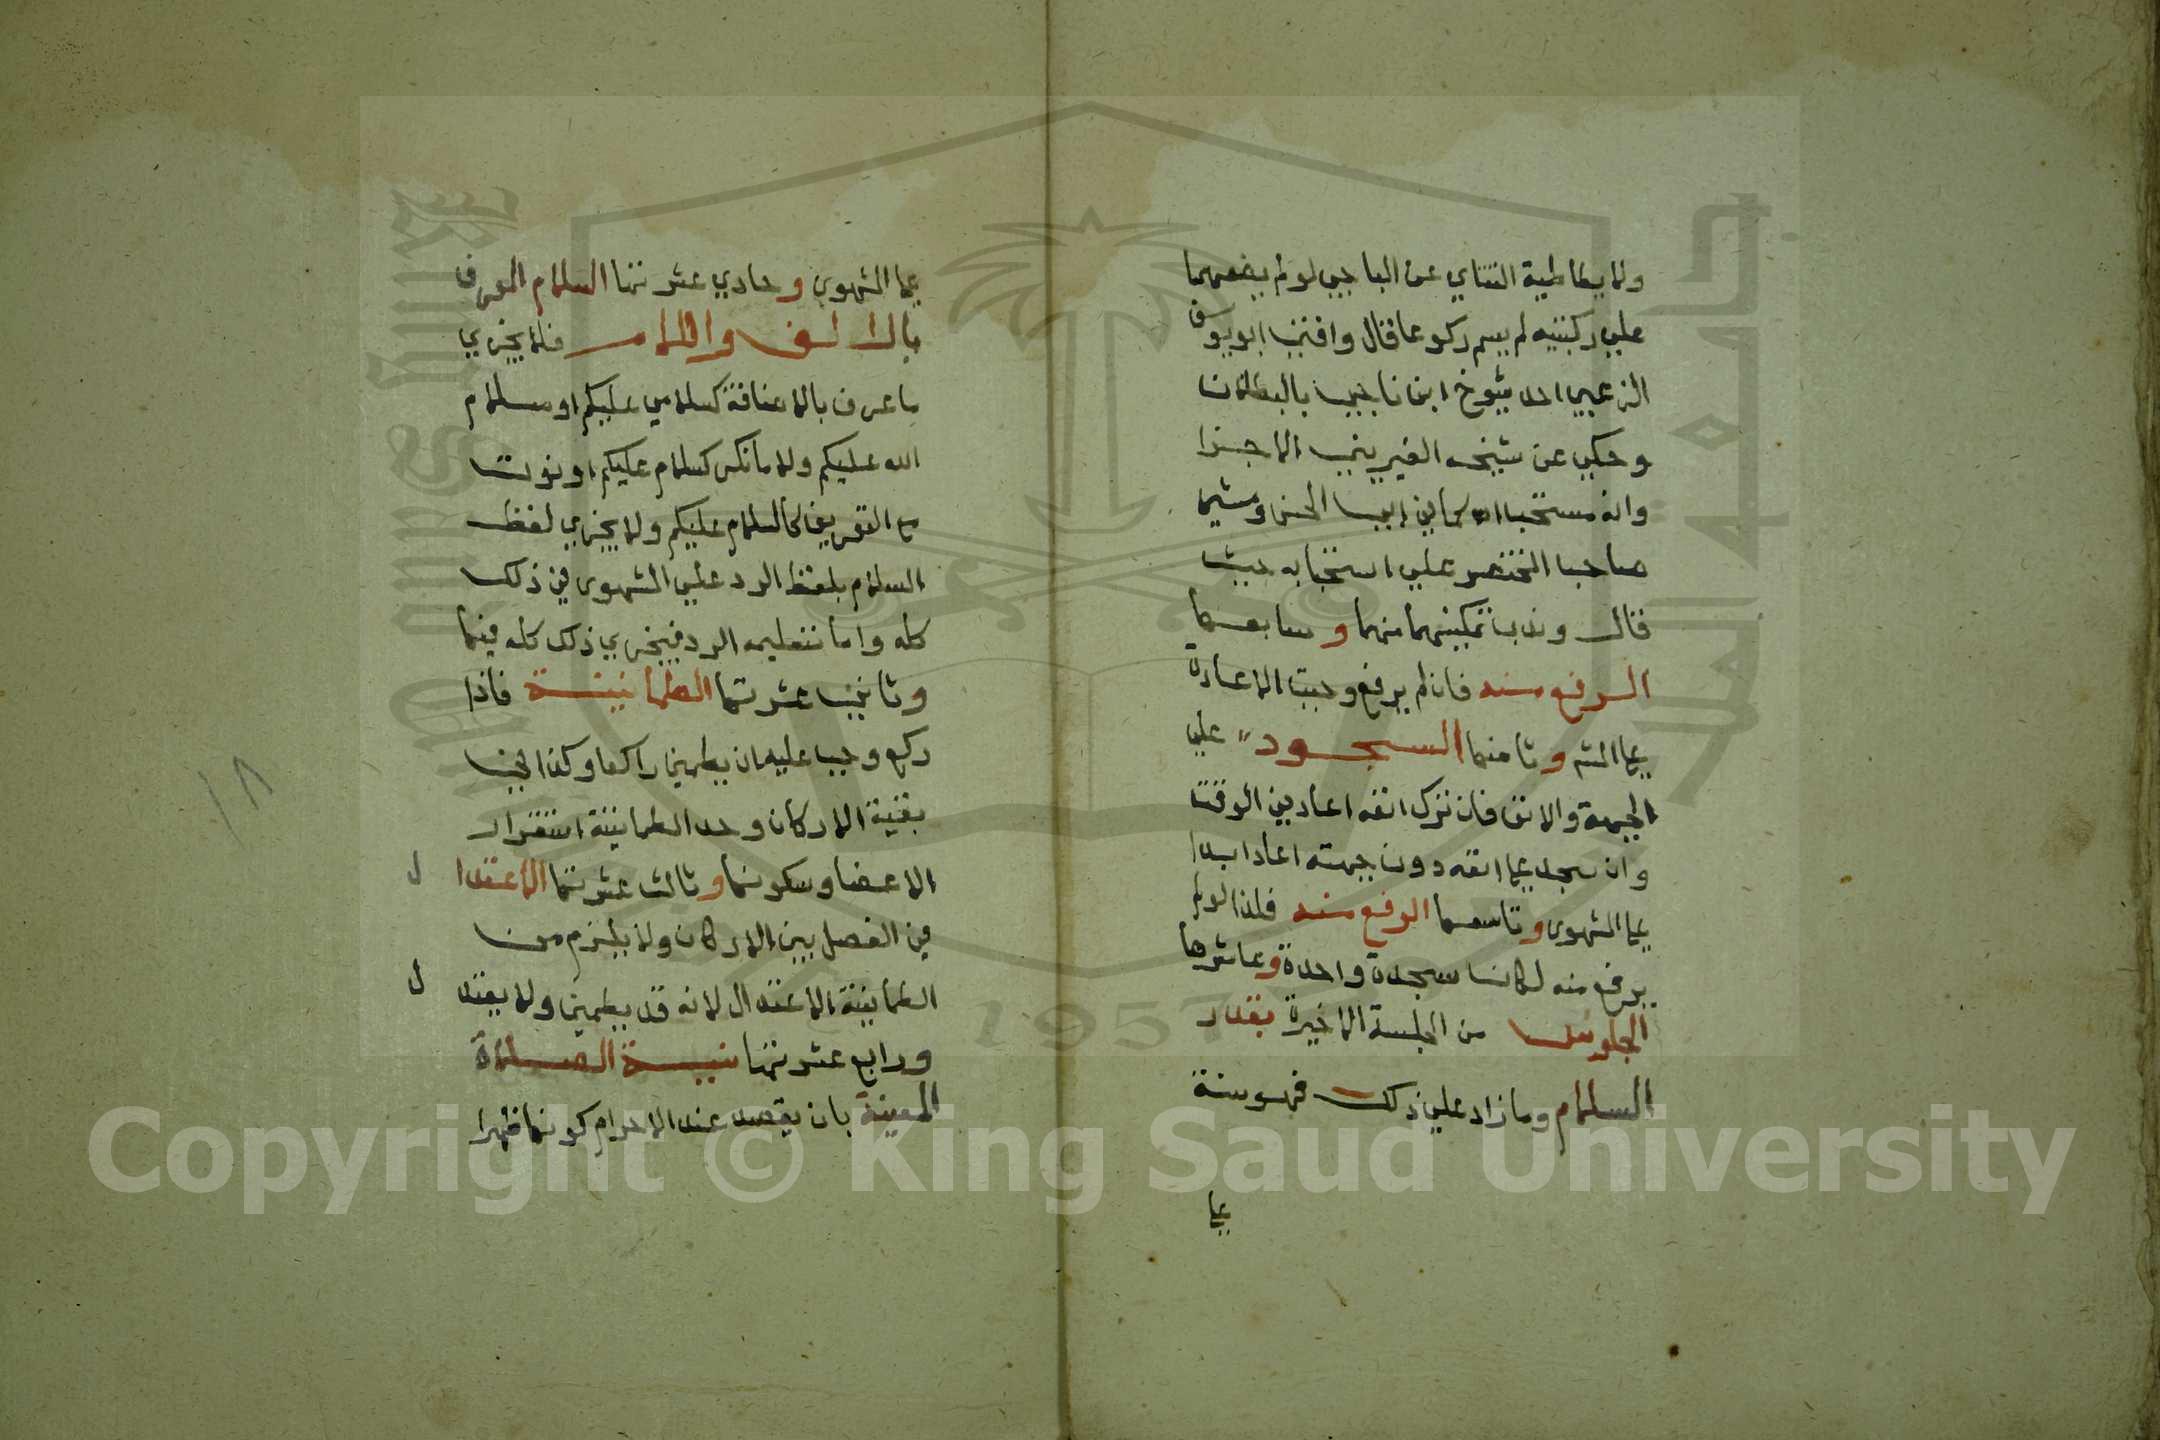 ولا يطاطيه التتاي عن الباجي لو لم يضعهما
علي ركبتيه لم يسم ركوعا قال وافتي ابو يوسف
الزعبي احد شيوخ ابن ناجي بالبطلان
وحكي عن شيخه الغبريني الاجزا
وانه مستحب
صاحب المختصر علي استحبابه حيث
قال وندب تمكينهما منهما وسابعها
الرفع منه فان لم يرفع وجبت الاعادة
علي المش وثامنها السجود علي
الجبهة والانف فان ترك انفه اعاد في الوقت
وان سجد علي انفه دون جبهته اعاد ابدا
علي المشهور وتاسعها الرفع منه فلذا لو لم
يرفع منه لكانت سجدة واحدة وعاشرها
الجلوس من الجلسة الاخيرة بقدر
السلام وما زاد علي ذلك فهو سنة
علي
علي المشهور وحادي عشرتها السلام المعرف
بالالف واللام فلا يجزي
ما عرف بالاضافة كسلامي عليكم او سلام
الله عليكم ولا ما نكر كسلام عليكم او نون
مع التعريف كالسلام عليكم ولا يجزي لفظ
السلام بلفظ الرد علي المشهور في ذلك
كله واما تسليمه الرد فيجزي ذلك كله فيها
وثاني عشرتها الطمانينة فاذا
ركع وجب عليه ان يطمين راكعا وكذا في
بقية الاركان وحد الطمانينة استقرار
الاعضا وسكونها وثالث عشرتها الاعتدال
في الفصل بين الاركان ولا يلزم من
الطمانينة الاعتدال لانه قد يطمين ولا يعتدل
ورابع عشرتها نية الصلاة
المعينة بان يقصد عند الاحرام كونها ظهرا
١٨
Copyright © King Saud University
1957